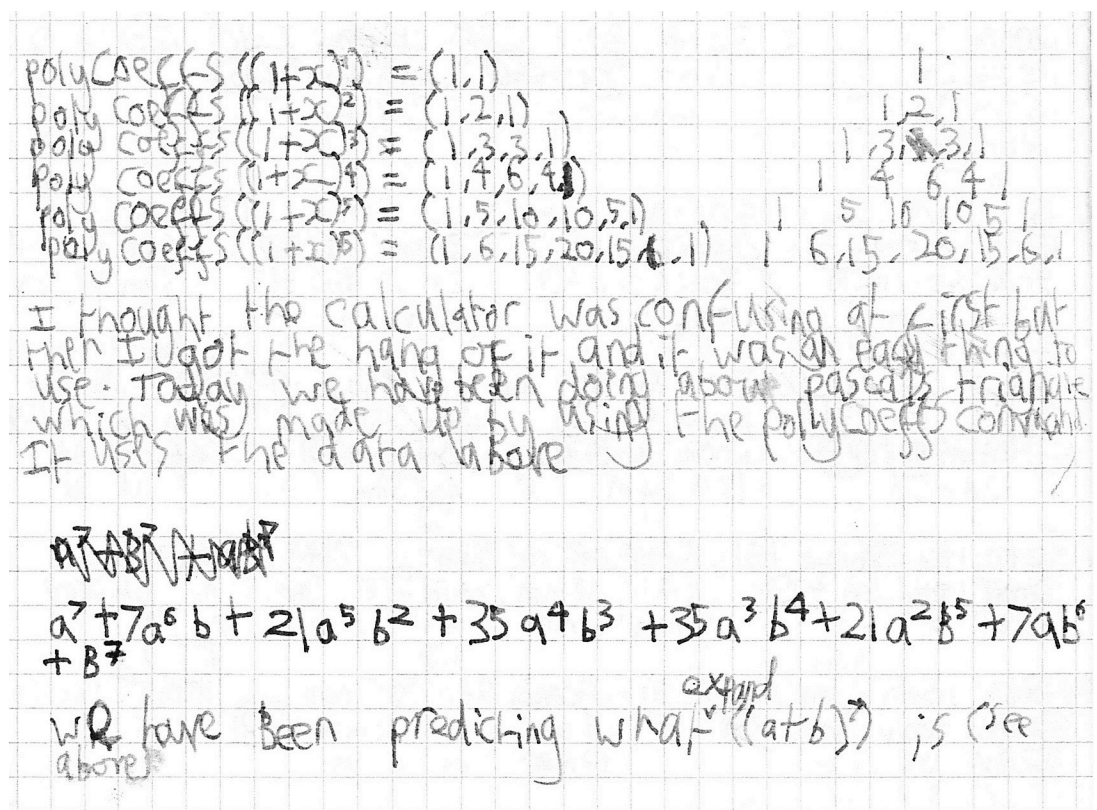 polyCoeffs((1+x)¹) = (1,1) 1
poly coeffs((1+x)²) = (1,2,1) 1,2,1
poly coeffs((1+x)³) = (1,3,3,1) 1,3,3,1
poly coeffs((1+x)4) = (1,4,6,4,1) 1 4 6 4 1
poly coeffs((1+x)5) = (1,5,10,10,5,1) 1 5 10 10 5 1
poly coeffs((1+x)6) = (1,6,15,20,15,6,1) 1 6,15,20,15,6,1
I thought the calculator was confusing at first but
then I got the hang of it and it was an easy thing to
use. Today we have been doing about pascals triangle
which was made up by using the polyCoeffs command.
It uses the data above
a⁷+7a⁶b+21a⁵b²+35a⁴b³+35a³b⁴+21a²b⁵+7ab⁶
+B⁷
expand
we have Been predicting what ((a+b)⁷) is (see
above)